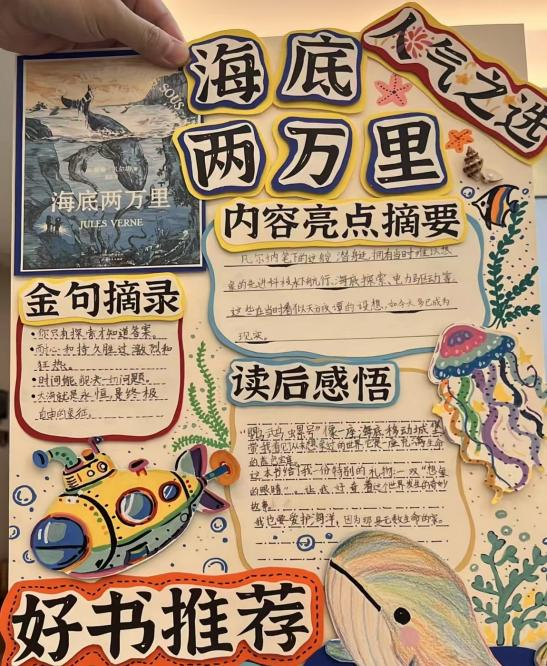 海底
人气之选
两万里
SOUS
海底两万里
JULES VERNE
内容亮点摘要
凡尔纳笔下的这艘潜艇拥有当时难以想
象的先进科技水下航行、海底探索、电力驱动等
这些在当时看似天方夜谭的设想,如今大多已成为
现实。
金句摘录
• 你只有探索才知道答案。
• 耐心和持久胜过激烈和
狂热。
• 时间能解决一切问题。
• 大海就是永恒是终极
自由的象征。
读后感悟
"鹦鹉螺号"像一座海底移动城堡
带我看见从未想象过的世界它是一座充满生命
的蓝色宝库
这本书给了我一份特别的礼物:一双"想象
的眼睛",让我好奇着这个世界发生的奇妙
故事。
我也要爱护海洋,因为那是无数生命的家。
好书推荐